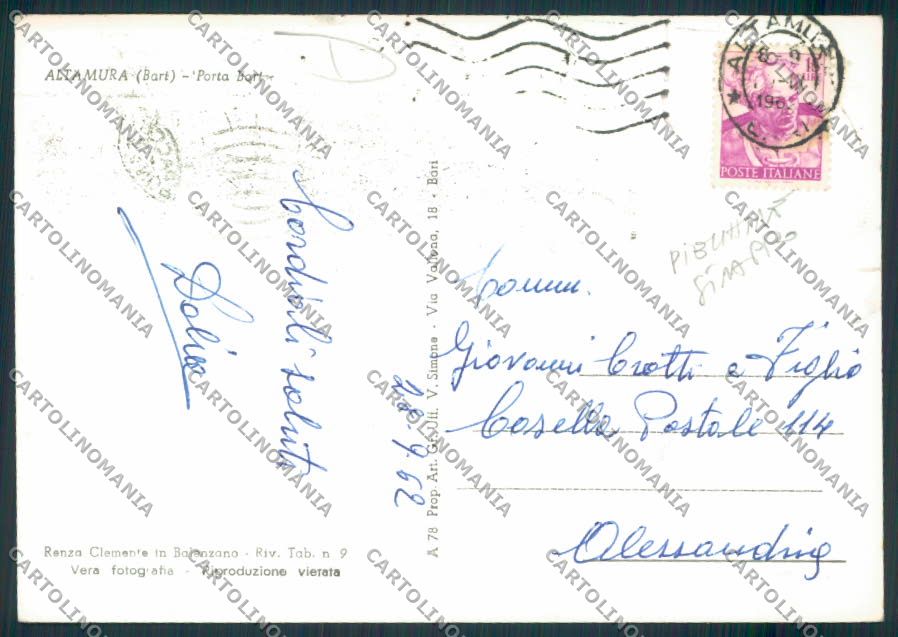 ALTAMURA (Bari) - Porta Bari
ALTAMURA
196
15
LIRE
POSTE ITALIANE
PIEGHINA
Cordiali saluti
28.9.62
A 78 Prop. Art. Gr. Uff. V. Simone - Via Vallona, 18 - Bari
Comm.
Giovanni Crotti e Figlio
Casella Postale 114
Alessandria
Renza Clemente in Balenzano - Riv. Tab. n 9
Vera fotografia - Riproduzione vietata
CARTOLINOMANIA